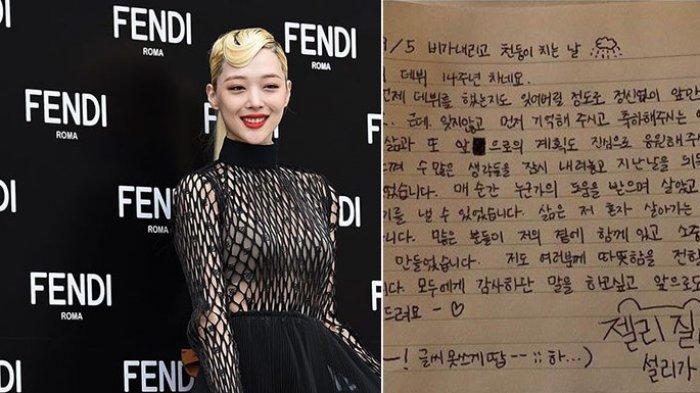 FENDI
ROMA
FENDI
FENDI
ROMA
FENDI
FENDI
ROMA
FENDI
ROMA
FENDI
FENDI
FENDI
ROMA
/5 비가내리고 천둥이 치는 날
데뷔 14주년 차네요.
데뷔를 했는지도 잊어버릴 정도로 정신없이 앞만
근데, 잊지않고 먼저 기억해 주시고 축하해주시는
삶과 또 앞으로의 계획도 진심으로 응원해주
수많은 생각들을 잠시 내려놓고 지난날을
었습니다. 매 순간 누군가의 도움을 받으며 살았고
를 낼 수 있었습니다. 삶은 저 혼자 살아가는
니다. 많은 분들이 저의 곁에 함께 있고 소중
만들었습니다. 저도 여러분께 따뜻함을 전
다. 모두에게 감사하단 말을 하고싶고 앞으로도
드려요 - ♡
젤리
-! 글씨 못쓰게땁 -- ;; 하...)
설리가